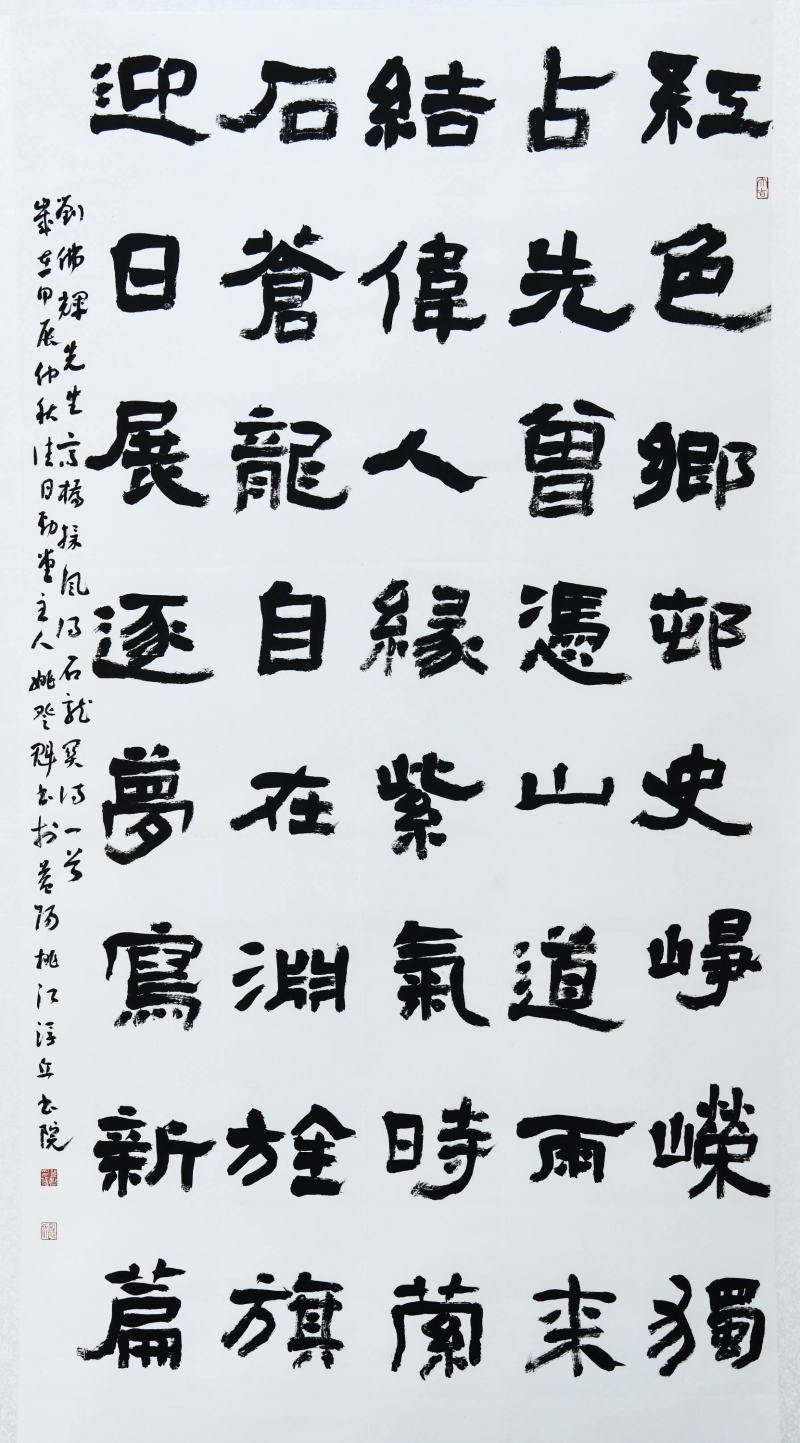 紅色鄉邨史崢嶸獨
占先曾憑山道雨来
結偉人緣紫氣時縈
石蒼龍自在淵旌旗
迎日展逐夢寫新篇
劉佛輝先生高橋採風得石龍 得一首
歲在甲辰仲秋佳日勤堂主人姚登魁書於益陽桃江浮丘書院